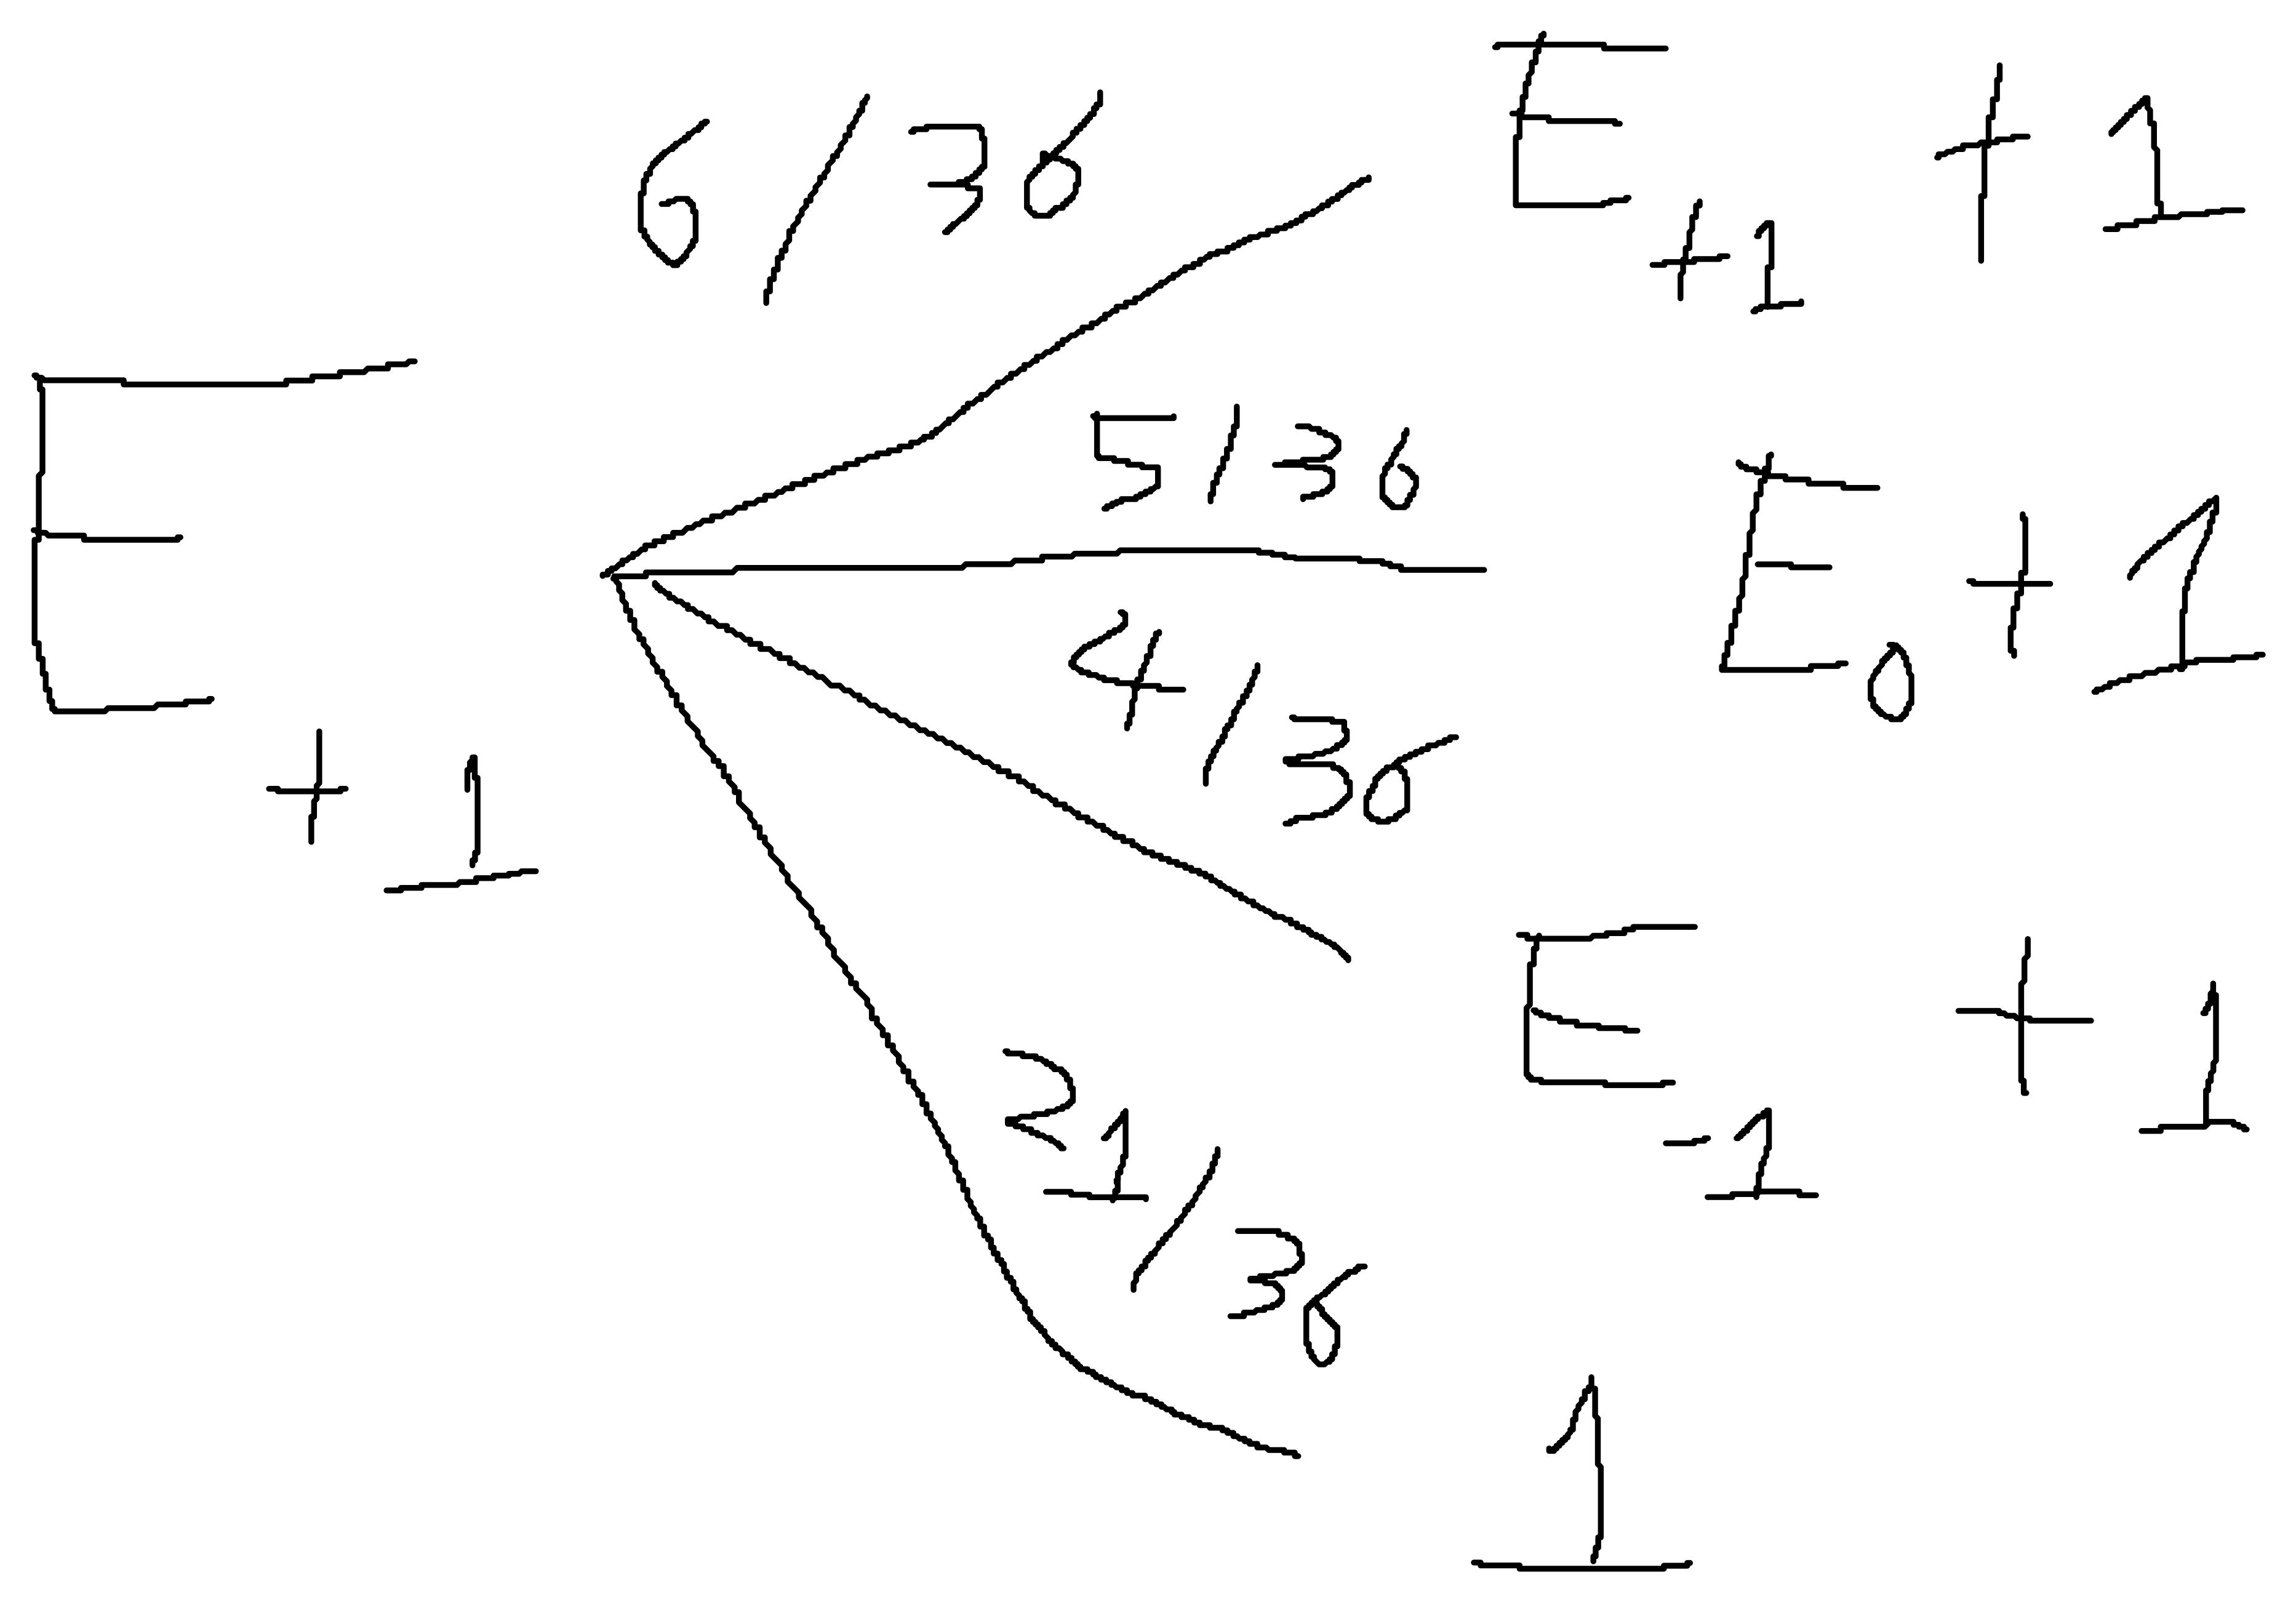 6/36 E+1 + 1
E+1
5/36 E0 + 1
4/36 E-1 + 1
21/36 1